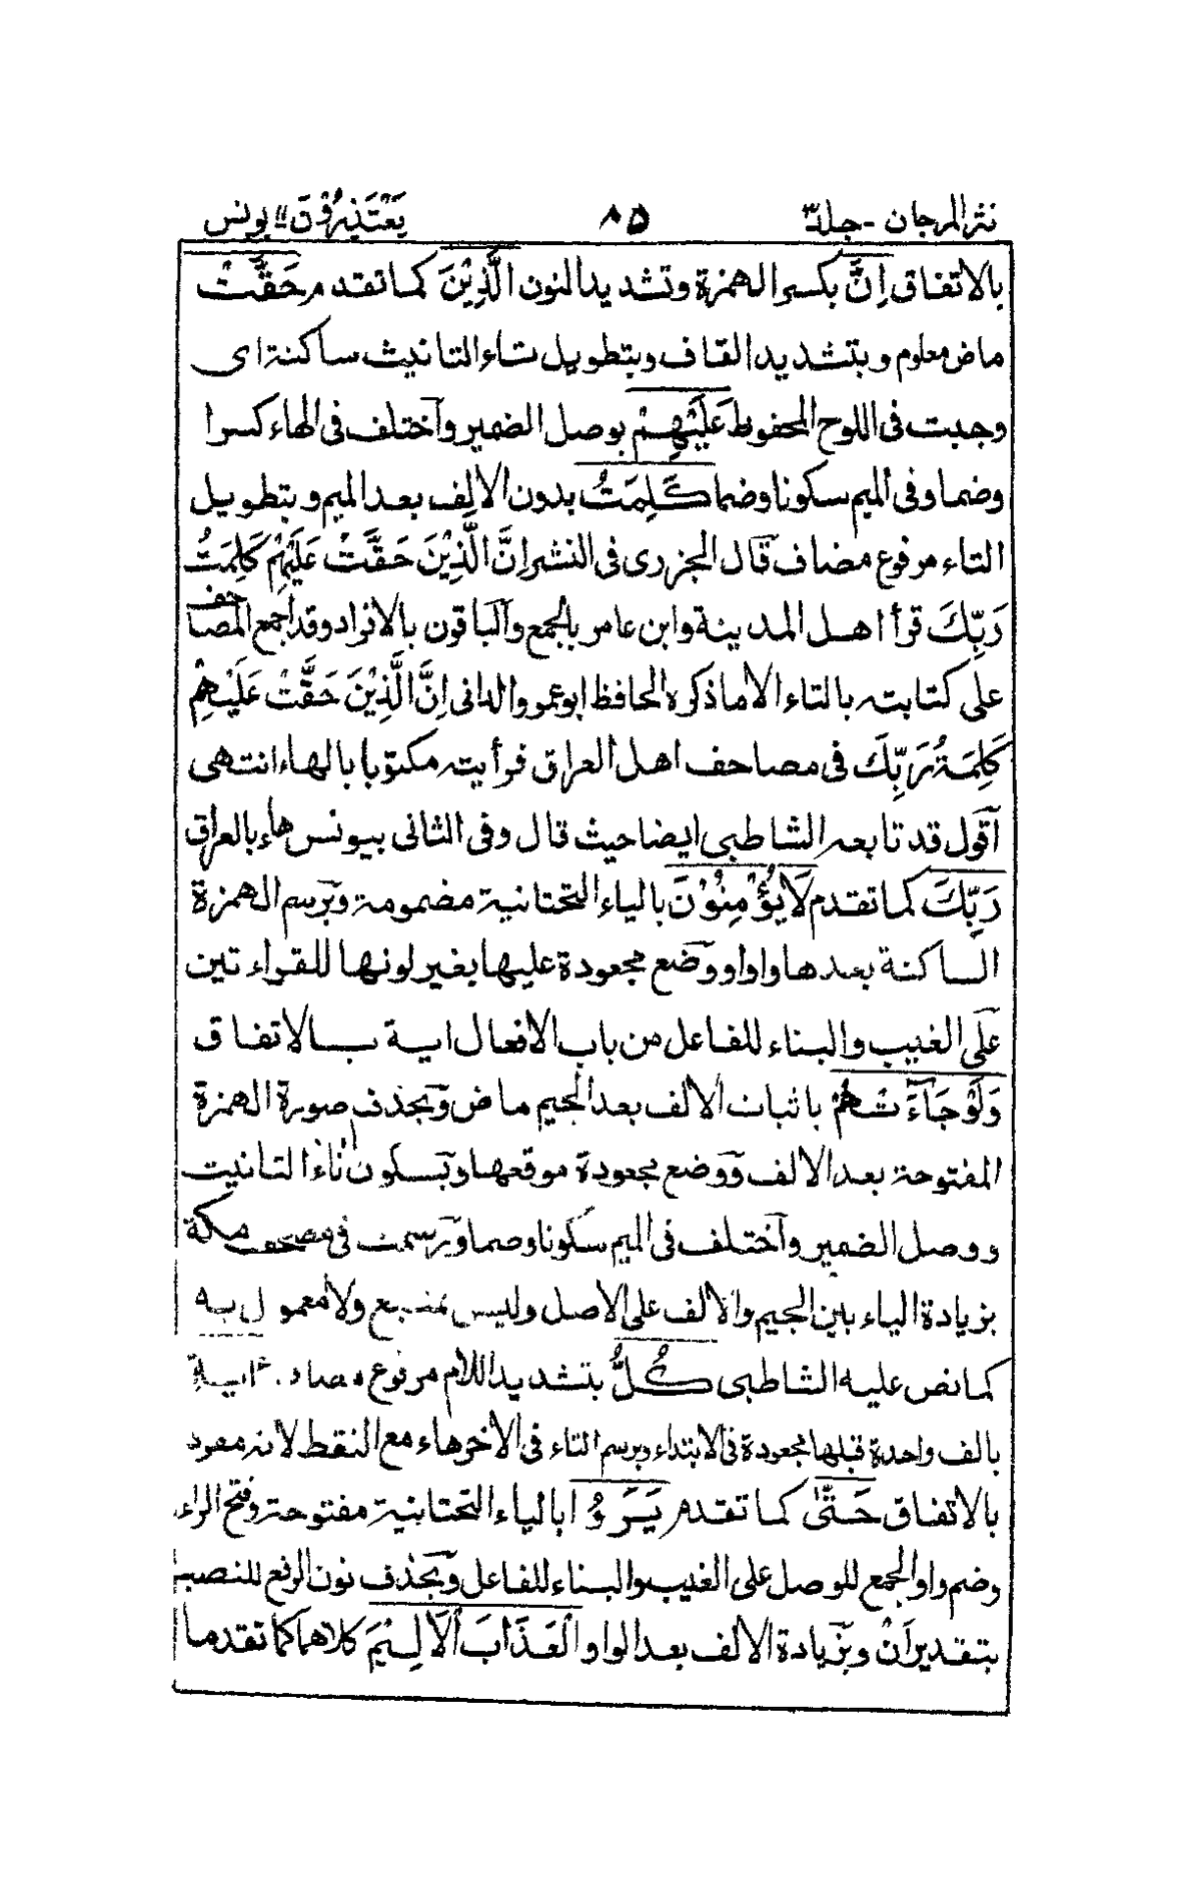 نثر المرجان - جلد ٣ ٨٥ يَعْتَذِرُوْنَ ١١ يونس
بالاتفاق اِنَّ بكسر الهمزة وتشديد النون الَّذِيْنَ كما تقدم حَقَّتْ
ماض معلوم وبتشديد القاف وبتطويل تاء التانيث ساكنة اى
وجبت فى اللوح المحفوظ عَلَيْهِمْ بوصل الضمير وآختلف فى الهاء كسرا
وضما وفى الميم سكونا وضما كَلِمَتُ بدون الالف بعد الميم وبتطويل
التاء مرفوع مضاف قال الجزرى فى النشر اِنَّ الَّذِيْنَ حَقَّتْ عَلَيْهِمْ كَلِمَتُ
رَبِّكَ قرأ اهل المدينة وابن عامر بالجمع والباقون بالافراد وقد اجمع المصاحف
على كتابته بالتاء الا ما ذكره الحافظ ابو عمرو الدانى اِنَّ الَّذِيْنَ حَقَّتْ عَلَيْهِمْ
كَلِمَةُ رَبِّكَ فى مصاحف اهل العراق فرأيته مكتوبا بالهاء انتهى
آقول قد تابعه الشاطبى ايضا حيث قال وفى الثانى بيونس هاء بالعراق
رَبِّكَ كما تقدم لَا يُؤْمِنُوْنَ بالياء التحتانية مضمومة وبرسم الهمزة
الساكنة بعدها واوا ووضع مجعودة عليها بغير لونها للقراءتين
على الغيب والبناء للفاعل من باب الافعال اية بالاتفاق
وَلَوْ جَآءَتْهُمْ باثبات الالف بعد الجيم ماض وبحذف صورة الهمزة
المفتوحة بعد الالف ووضع مجعودة موقعها وبسكون تاء التانيث
ووصل الضمير وآختلف فى الميم سكونا وضما ورسمت فى مصحف مكة
بزيادة الياء بين الجيم والالف على الاصل وليس بمتبع ولا معمول به
كما نص عليه الشاطبى كُلُّ بتشديد اللام مرفوع مضاف اٰيَةٍ
بالف واحدة قبلها مجعودة فى الابتداء وبرسم التاء فى الاخر هاء مع النقط لانه مفرد
بالاتفاق حَتّٰى كما تقدم يَرَوُا بالياء التحتانية مفتوحة وفتح الراء
وضم واو الجمع للوصل على الغيب والبناء للفاعل وبحذف نون الرفع للنصب
بتقدير اَنْ وبزيادة الالف بعد الواو الْعَذَابَ الْاَلِيْمَ كلاهما كما تقدما